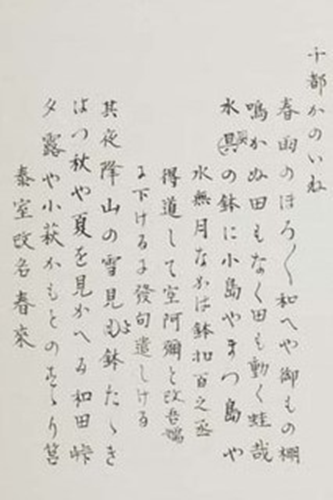 千都かのいね
春雨のほろ〱和へや御もの棚
鳴かぬ田もなく田も動く蛙哉
水具の鉢に小島やまつ島や
水無月なかは鉢扣百之丞
得道して空阿彌と改吾嬬
に下けるに發句遣しける
其夜降山の雪見よ鉢たゝき
はつ秋や夏を見かへる和田峠
夕露や小萩かもとのすゝり筥
泰室改名春來